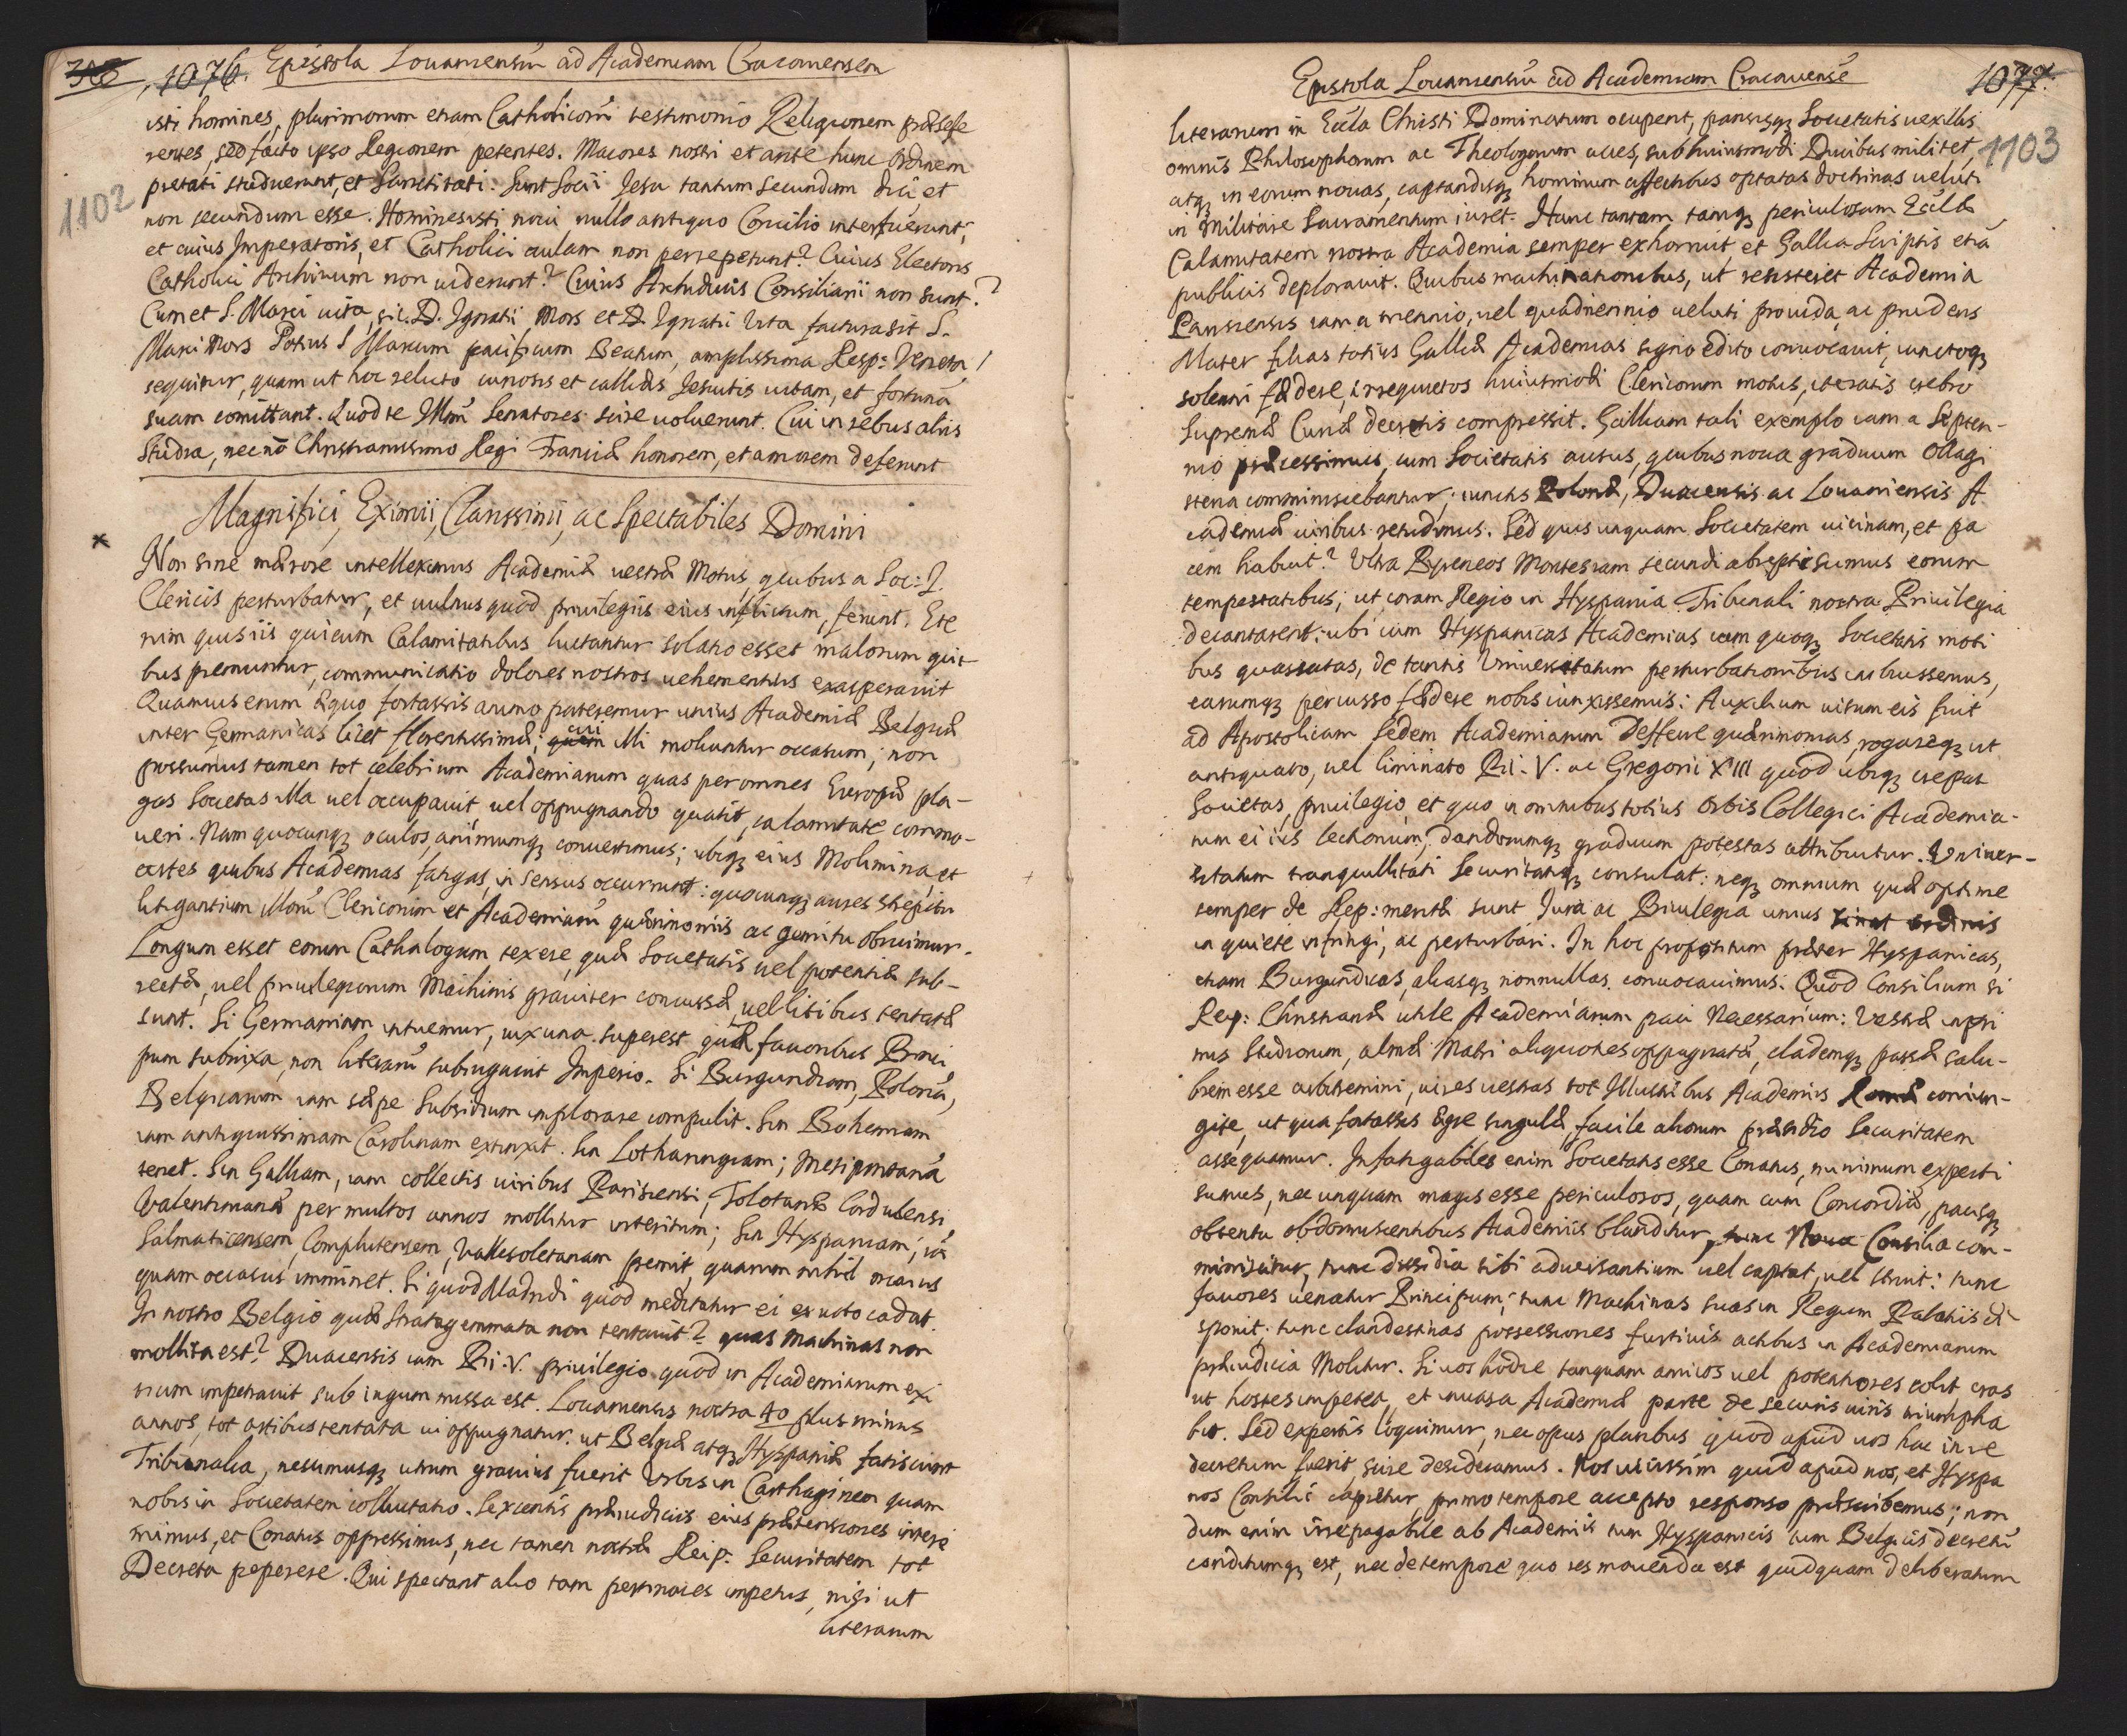 1076. Epistola Louaniensiũ ad Academiam Cracouiensem
1102
isti homines, plurimorum etiam Catholicorũ testimonio Religionem præsefe
rentes, sed facto ipso Regionem petentes. Maiores nostri et ante hunc Ordinem
pietati studuerunt, et Sanctitati. Sunt Socii Jesu tantum secundum dici, et
non secundum esse. Homines isti noui nullo antiquo Concilio interfuerunt;
et cuius Imperatoris, et Catholici aulam non perrepetunt? Cuius Electoris
Catholici Archiuum non uiderunt? Cuius Archiducis Consiliarii non sunt?
Cum et S. Marci uita, sic. D. Ignatii Mors et D. Ignatii Vita factura sit S.
Marci Mors Potius S Marcum pacificum Beatum, amplissima Resp: Veneta
sequitur, quam ut hoc relicto curiosis et callidis Jesuitis uitam, et fortunã
suam comittant. Quod te Illmi Senatores scire uoluerunt. Cui in rebus aliis
Studia, necnõ Christianissimo Regi Franciæ honorem, et amorem deferunt
Magnifici, Eximii, Clarissimi, ac Spectabiles Domini
Non sine mærore intelleximus Academiæ uestræ Motus, quibus a Soc: J.
Clericis perturbatur, et uulnus quod priuilegiis eius inflictum, ferunt. Ete
nim quis iis qui cum Calamitatibus luctantur solatio esset malorum qui-
bus premuntur, communicatio dolores nostros uehementius exasperauit
Quamuis enim æquo fortassis animo pateremur unius Academiæ Belgicæ
inter Germanicas licet florentissimæ; cui illi moliuntur occasum; non
possumus tamen tot celebrium Academiarum quas per omnes Europæ pla-
gas Societas illa uel occupauit uel oppugnando quatit, calamitate commo-
ueri. Nam quocunqꝫ oculos, animumqꝫ conuertimus; ubiqꝫ eius Molimina, et
artes quibus Academias fatigat, in sensus occurrunt: quocunqꝫ aures strepitu
litigantium illorũ Clericorum et Academiarũ quærimoniis ac gemitu obruimur.
Longum esset eorum Cathalogum texere, quæ Societatis uel potentiæ sub-
iectæ, uel priuilegiorum Machinis grauiter concussæ, uel litibus tentatæ
sunt. Si Germaniam intuemur, uix una superest quæ fauoribus Princi
pum subnixa, non literarũ subiugauit Imperio. Si Burgundiam, Poloniã,
Belgicarum iam sæpe Subsidium implorare compulit. Sin Bohemam
iam antiquissimam Carolinam extinxit. Sin Lotharingiam; Metipontanã
tenet. Sin Galliam, iam collectis uiribus Parisiensi, Tolotanæ Cordubensi
Valentinianæ per multos annos mollitur interitum; Sin Hyspaniam; iã
Salmaticensem, Complutensem, Vallisoletanam premit, quarum nihil magis
quam occasus imminet. Si quod Madridi quod meditatur ei ex uoto cadat.
In nostro Belgio quæ Stratagemmata non tentauit? quas machinas non
mollita est? Duacensis iam Pii. V. priuilegio quod in Academiarum exi
tium impetrauit sub iugum missa est. Louaniensis nostra 40 plus minus
annos, tot artibus tentata ui oppugnatur. ut Belgiæ atqꝫ Hyspaniæ fatiscant
Tribunalia, nesciimusqꝫ utrum grauius fuerit Urbis in Carthaginem quam
nobis in Societatem colluctatio. Sexcentis præiudiciis eius prætensiones interi
mimus, et Conatus oppressimus, nec tamen nostræ Reip: Securitatem tot
Decreta peperere. Qui spectant alio tam pertinaces impetus, nisi ut
literarum
Epistola Louaniensiũ ad Academiam Cracouiensẽ
1077.
1103
literarum in Eccla Christi Dominatum occupent, pansisqꝫ Societatis uexillis
omnis Philosophorum ac Theologorum acies, sub huiusmodi Ducibus militet,
atqꝫ in eorum nouas, captandisqꝫ hominum affectibus optatas doctrinas ueluti
in Militare Sacramentum iuret. Hanc tantam tamqꝫ periculosam Ecclæ
Calamitatem nostra Academia semper exhorruit, et Gallia Scriptis etiã
publicis deplorauit. Quibus machinationibus, ut resisteret Academia
Parisiensis iam a triennio, uel quadriennio ueluti prouida, ac prudens
Mater filias totius Galliæ Academias signo edito conuocauit, iunctoqꝫ
solemni fædere, irrequietos huiusmodi Clericorum motus, iteratis crebro
Supremæ Curiæ decretis compressit. Galliam tali exemplo iam a Septen-
nio præcessimus, cum Societatis ausus, quibus noua graduum Magi
steria comminiscebantur; iunctis Poloniæ, Duacensis ac Louaniensis A
cademiæ uiribus retudimus. Sed quis unquam Societatem uicinam, et pa
cem habuit? Ultra Pyreneos Montes iam secundi abrepti sumus eorum
tempestatibus; ut coram Regio in Hyspania Tribunali nostra Priuilegia
decantarent; ubi cum Hyspanicas Academias iam quoqꝫ Societatis moti
bus quassatas, de tantis Uniuersitatum perturbationibus imbuissemus,
earumqꝫ percusso fædere nobis iunxissemus: Auxilium uisum eis fuit
ad Apostolicam Sedem Academiarum Defferre quærimonias, rogareqꝫ ut
antiquato, uel liminato Pii. V. ac Gregorii XIII quod ubiqꝫ crepat
Societas, priuilegio, et quo in omnibus totius Orbis Collegiis Academia-
rum ei ius lectionum, dandorumqꝫ graduum potestas attribuitur. Uniuer-
sitatum tranquillitati Securitatiqꝫ consulat: neqꝫ omnium quæ optime
semper de Rep: meritæ sunt Jura ac Priuilegia unius sinat ordinis
inquiete infringi, ac perturbari. In hoc propositum præter Hyspanicas,
etiam Burgundicas, aliasqꝫ nonnullas conuocauimus: Quod Consilium si
Reip: Christianæ utile Academiarum paci Necessarium: Vestræ inpri
mis Studiorum, almæ Matri aliquoties oppugnatæ, clademqꝫ passæ salu-
brem esse arbitremini, uires uestras tot Illustribus Academiis Romæ coniun-
gite, ut qua fortasses ægre singulæ, facile aliorum præsidio Securitatem
assequamur. Infatigabiles enim Societatis esse Conatus, nunimum experti
sumus, nec unquam magis esse periculosos, quam cum Concordiæ, pacisqꝫ
obtentu obdormiscentibus Academiis blanditur, tunc Noua Consilia com-
miniscitur, tunc dissidia sibi aduersantium uel captat, uel struit: tunc
fauores uenatur Principum; tunc Machinas suas in Regum Palatiis di
sponit: tunc clandestinas possessiones furtiuis actibus in Academiarum
præiudicia Molitur. Si uos hodie tanquam amicos uel potentiores colit cras
ut hostes impetet, et inuasa Academiæ parte de securis uiris triumpha
bit. Sed expertis loquimur, nec opus pluribus quod apud uos hac in re
decretum fuerit, scire desideramus. Nos uicissim quid apud nos, et Hyspa
nos Consilii capietur, primo tempore accepto responso præscribemus; non
dum enim irrepagabile ab Academiis tum Hyspanicis tum Belgicis decretũ
conditumqꝫ est, nec de tempore quo res mouenda est quidquam deliberatum